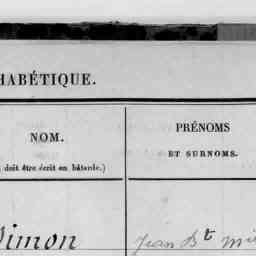 HABÉTIQUE.
NOM.
doit être écrit en bâtarde.)
PRÉNOMS
ET SURNOMS.
Simon
Jean Bt